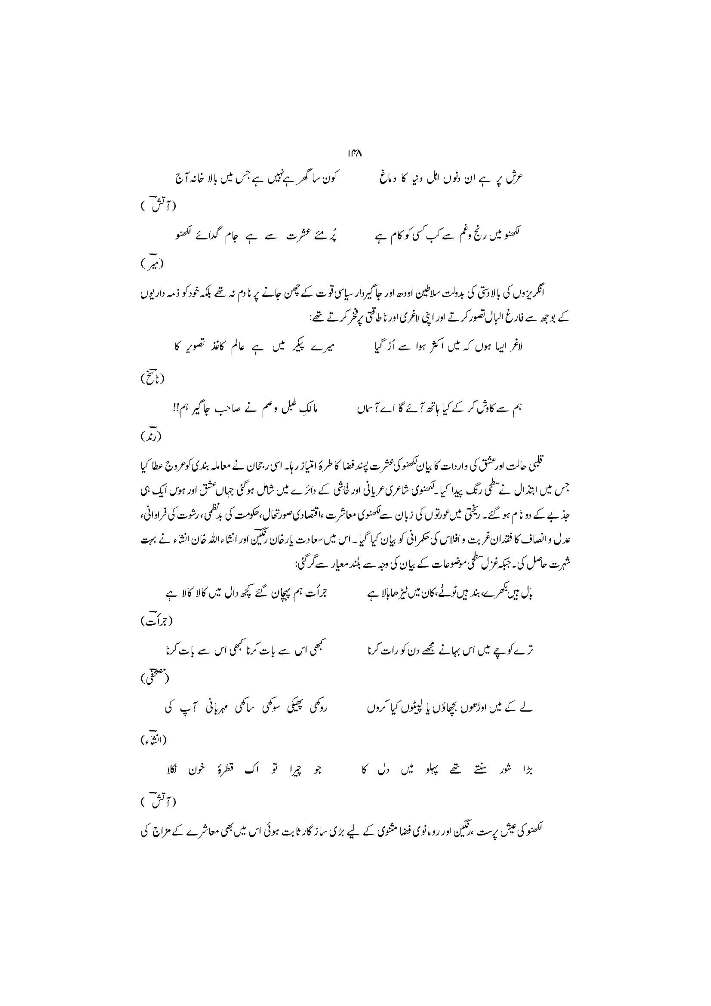 ۱۴۸
عرش پر ہے ان دنوں اہل دنیا کا دماغ کون سا گھر ہے نہیں ہے جس میں بالا خانہ آج
(آتشؔ)
لکھنو میں رنج وغم سے کب کسی کو کام ہے پُر مئے عشرت سے ہے جام گدائے لکھنو
(میرؔ)
انگریزوں کی بالادستی کی بدولت سلاطین اودھ اور جاگیردار سیاسی قوت کے چھن جانے پر نادم نہ تھے بلکہ خود کو ذمہ داریوں
کے بوجھ سے فارغ البال تصور کرتے اور اپنی لاغری اور ناطاقتی پر فخر کرتے تھے:
لاغر ایسا ہوں کہ میں اکثر ہوا سے اُڑ گیا میرے پیکر میں ہے عالم کاغذ تصویر کا
(ناسخؔ)
ہم سے کاوش کر کے کیا ہاتھ آئے گا اے آسماں مالکِ طبل وعلم نے صاحب جاگیر ہم!!
(رندؔ)
قلبی حالت اور عشق کی واردات کا بیان لکھنو کی عشرت پسند فضا کا طرۂ امتیاز رہا۔ اسی رجحان نے معاملہ بندی کو عروج عطا کیا
جس میں ابتذال نے سطحی رنگ پیدا کیا۔ لکھنوی شاعری عریانی اور فحاشی کے دائرے میں شامل ہو گئی جہاں عشق اور ہوس ایک ہی
جذبے کے دو نام ہو گئے۔ ریختی میں عورتوں کی زبان سے لکھنوی معاشرت ،اقتصادی صورتحال، حکومت کی بدنظمی، رشوت کی فراوانی،
عدل و انصاف کا فقدان غربت و افلاس کی حکمرانی کو بیان کیا گیا۔ اس میں سعادت یار خان رنگینؔ اور انشاءاللہ خان انشاء نے بہت
شہرت حاصل کی۔ جبکہ غزل سطحی موضوعات کے بیان کی وجہ سے بلند معیار سے گر گئی:
بال ہیں بکھرے، بند ہیں ٹوٹے، کان میں ٹیڑھا بالا ہے جرأت ہم پہچان گئے کچھ دال میں کالا کالا ہے
(جرأتؔ)
ترے کوچے میں اس بہانے مجھے دن کو رات کرنا کبھی اس سے بات کرنا کبھی اس سے بات کرنا
(مصحفیؔ)
لے کے میں اوڑھوں بچھاؤں یا لپیٹوں کیا کروں روکھی پھیکی سوکھی ساکھی مہربانی آپ کی
(انشاءؔ)
بڑا شور سنتے تھے پہلو میں دل کا جو چیرا تو اک قطرۂ خون نکلا
(آتشؔ)
لکھنو کی عیش پرست ،رنگین اور رومانوی فضا مثنوی کے لیے بڑی ساز گار ثابت ہوئی اس میں بھی معاشرے کے مزاج کی